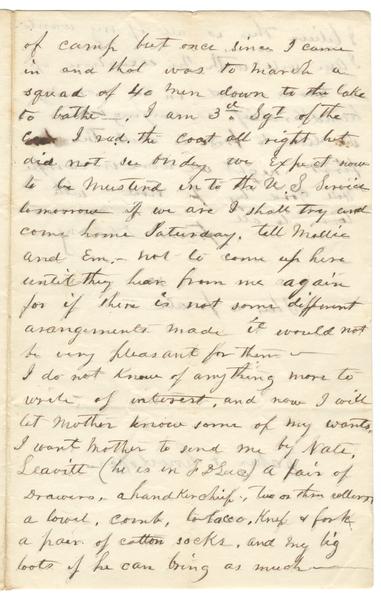 of camp but once since I came
in and that was to march a
squad of 40 men down to the lake
to bathe —. I am 3d. Sgt of the
Co. I recd. the coat all right but
did not see we expect now
to be musterd in to the U S Service
tomorrow if we are I shall try and
come home Saturday, tell Mollie
and Em,— not to come up here
until they hear from me again
for if there is not some different
arangements made it would not
be very pleasant for them —
I do not know of anything more to
write of interest, and now I will
let Mother know some of my wants,
I want Mother to send me by Nate,
Leavitt (he is in ) a pair of
Drawers, a handkerchief, two or three collers,
a towel, comb, tobacco, Knif & fork
a pair of cotton socks, and my big
boots if he can bring as much —